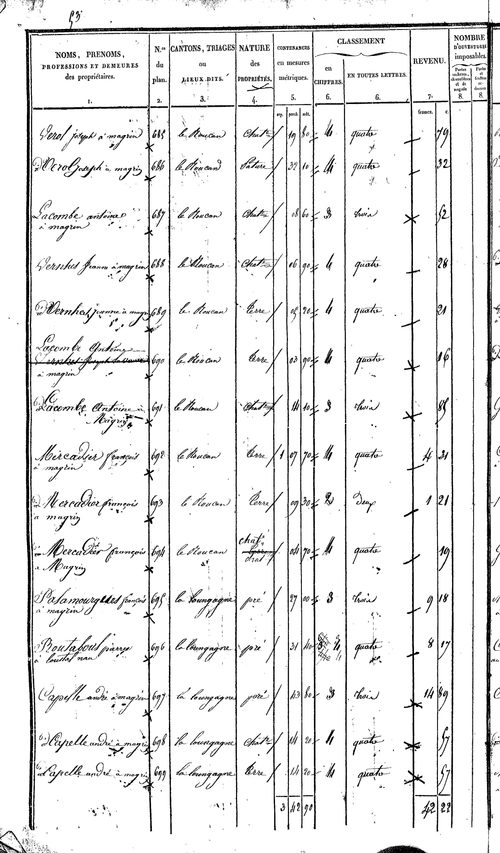 53
NOMS, PRENOMS, PROFESSIONS ET DEMEURES des propriétaires. N.os du plan. CANTONS, TRIAGES ou LIEUX DITS. NATURE des PROPRIÉTÉS. CONTENANCES en mesures métriques. CLASSEMENT en CHIFFRES. EN TOUTES LETTRES. REVENU. NOMBRE D'OUVERTURES imposables.
1. 2. 3. 4. 5. 6. 6. 7. 8. 8.
francs. c.
Verol joseph à magrin 685 le Roucan chat.re 19 80 4 quatre 79
d° Verol joseph à magrin 686 le Roucan Pature 32 10 4 quatre 32
Lacombe antoine 687 le Roucan chat.re 08 60 3 trois 52
à magrin
Vernhes jeanne à magrin 688 le Roucan chat.re 06 90 4 quatre 28
d° Vernhes jeanne à magrin 689 le Roucan terre 05 20 4 quatre 21
Lacombe Antoine
690 le Roucan terre 03 90 4 quatre 16
à magrin
Lacombe Antoine à 691 le Roucan chat.re 14 10 3 trois 85
Magrin
Mercadier françois 692 le Roucan terre 1 07 70 4 quatre 4 31
à magrin
d° Mercadier françois 693 le Roucan terre 09 30 2 Deux 1 21
à magrin
d° Mercadier françois 694 le Roucan chat. 04 70 4 quatre 19
à Magrin
Palamourgues françois 695 la loungagne pré 27 00 3 trois 9 18
à magrin
Boutaboul pierre 696 la loungagne pré 31 40 4 quatre 8 17
Capelle andré à magrin 697 la loungagne pré 43 80 3 trois 14 89
d° Capelle andré à magrin 698 la loungagne chat.re 14 20 4 quatre 57
d° Capelle andré à magrin 699 la loungagne terre 14 20 4 quatre 57
3 42 90 42 22